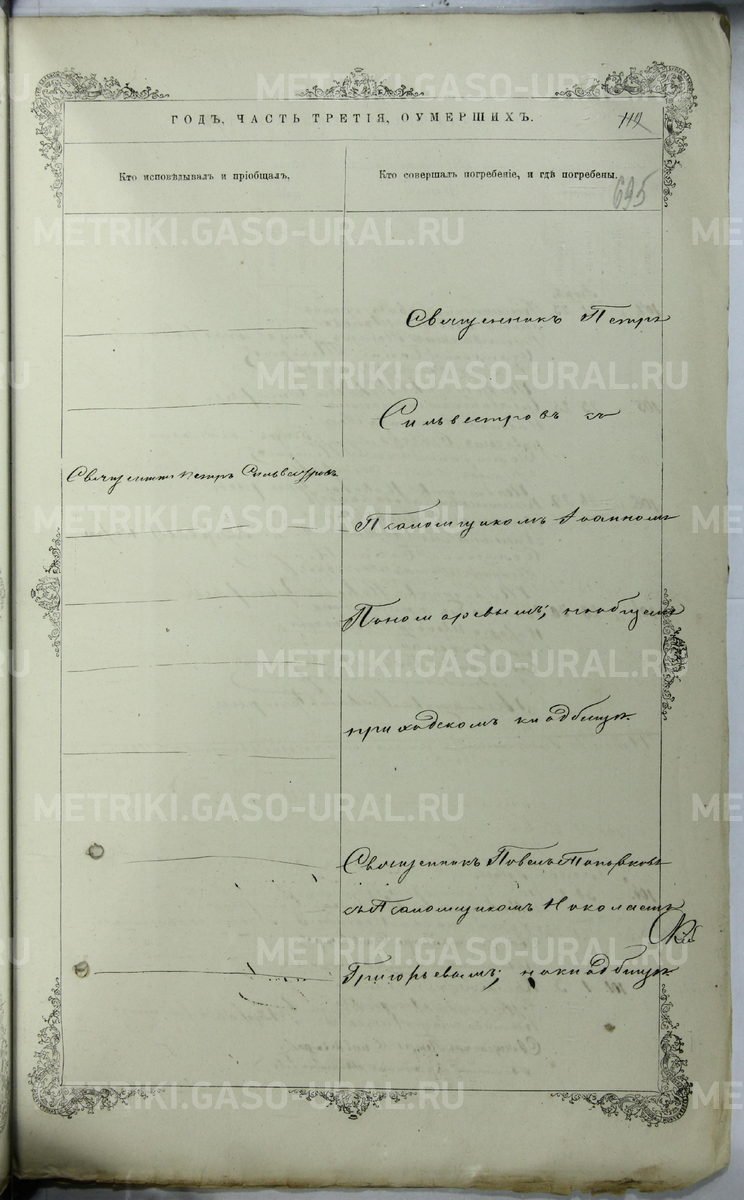 ГОДЪ, ЧАСТЬ ТРЕТІЯ, О УМЕРШИХЪ.
112
Кто исповѣдывалъ и пріобщалъ.
Кто совершалъ погребеніе, и гдѣ погребены.
695
Священникъ Петръ
Сильвестровъ съ
Священникъ Петръ Сильвестровъ
Псаломщикомъ Іоанномъ
Пономаревымъ; на общемъ
приходскомъ кладбищѣ.
Священникъ Павелъ Топорковъ
съ Псаломщикомъ Николаемъ
Григорьевымъ; на кладбищѣ
METRIKI.GASO-URAL.RU